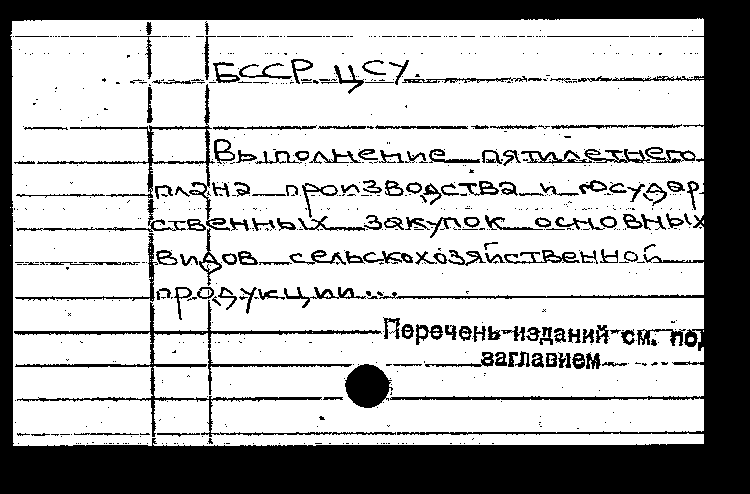 БССР ЦСУ.
Выполнение пятилетнего
плана производства и государ
ственных закупок основных
видов сельскохозяйственной
продукции...
Перечень изданий см. под
заглавием